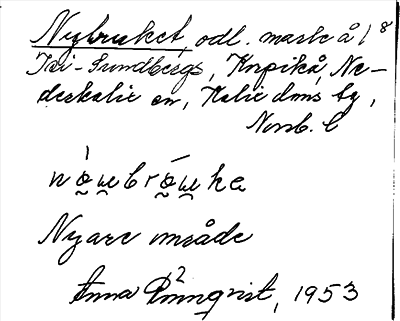 Nybruket, odl. mark å 1/8
Isi-Sundbergs, Korpikå, Ne-
derkalix sn, Kalix dms tg,
Norrb. l
nǫ̀u̯brǫ́u̯ka
Nyare område
Anna Rönnqvist, 1953